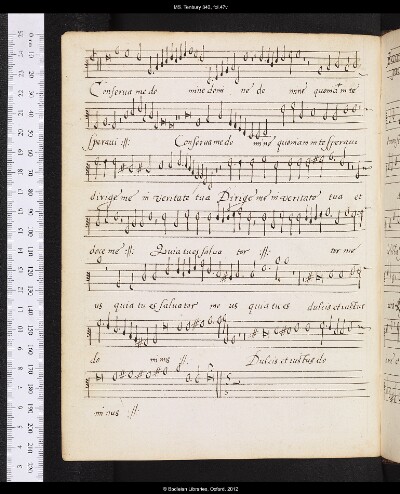 MS. Tenbury 340, fol.47v
Conserua me do mine domi ne do mine quoniam in te
speraui :||: Conserua me do mine quoniam in te speraui
dirige me in veritate tua Dirige me in veritate tua et
doce me :||: Quia tu es salua tor :||: tor me
us quia tu es saluator me us quia tu es dulcis et iustus
do minus :||: Dulcis et iustus do
minus :||:
© Bodleian Libraries, Oxford, 2012